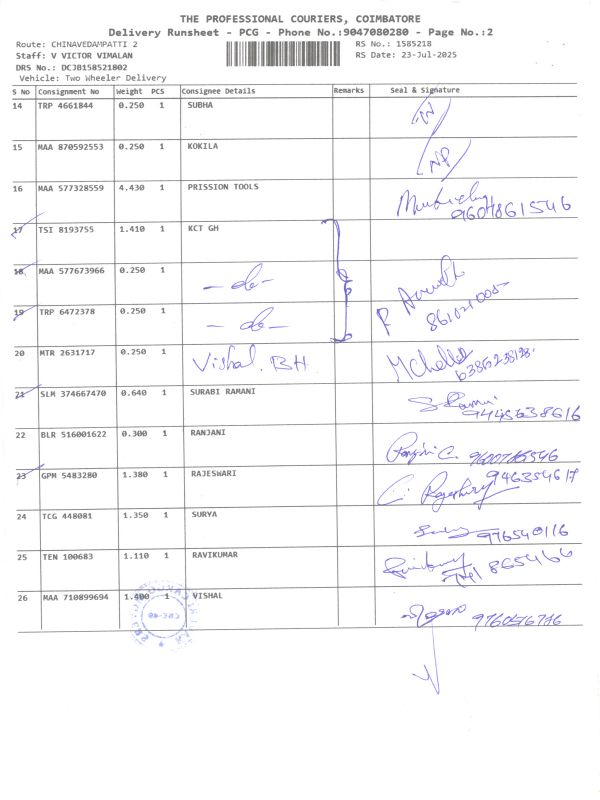 THE PROFESSIONAL COURIERS, COIMBATORE
Delivery Runsheet - PCG - Phone No.:9047080280 - Page No.:2
Route: CHINAVEDAMPATTI 2 RS No.: 1585218
Staff: V VICTOR VIMALAN RS Date: 23-Jul-2025
DRS No.: DCJB158521802
Vehicle: Two Wheeler Delivery
S No Consignment No Weight PCS Consignee Details Remarks Seal & Signature
14 TRP 4661844 0.250 1 SUBHA
15 MAA 870592553 0.250 1 KOKILA NP
16 MAA 577328559 4.430 1 PRISSION TOOLS
9604861546
17 TSI 8193755 1.410 1 KCT GH
18 MAA 577673966 0.250 1 - do -
19 TRP 6472378 0.250 1 - do -
20 MTR 2631717 0.250 1 Vishal. BH
21 SLM 374667470 0.640 1 SURABI RAMANI
9445638616
22 BLR 516001622 0.300 1 RANJANI
23 GPM 5483280 1.380 1 RAJESWARI 946354617
24 TCG 448081 1.350 1 SURYA
976540116
25 TEN 100683 1.110 1 RAVIKUMAR 865466
26 MAA 710899694 1.400 1 VISHAL